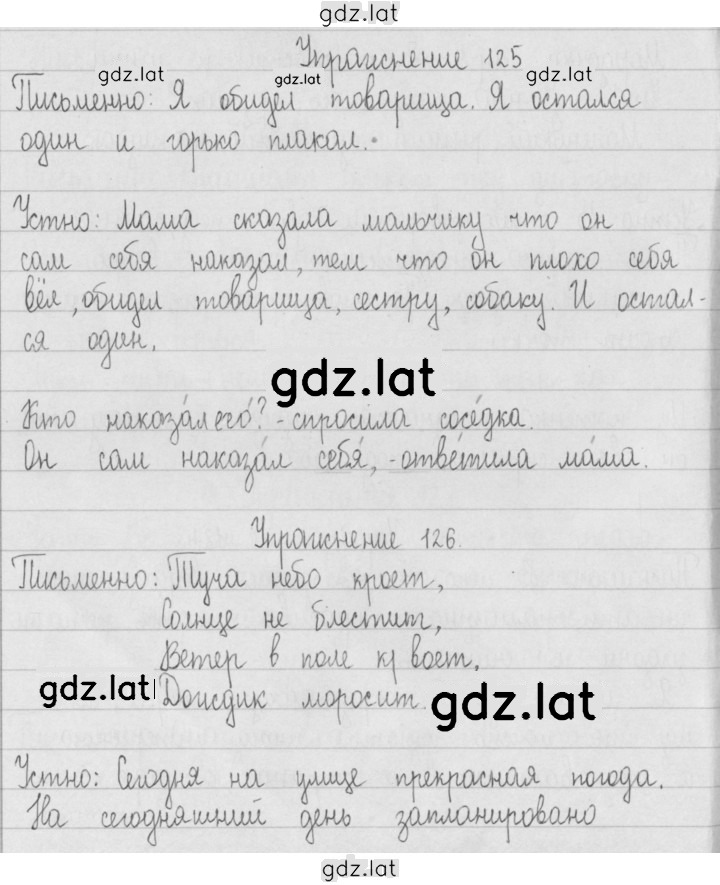 gdz.lat
Упражнение 125
gdz.lat gdz.lat gdz.lat
Письменно: Я обидел товарища. Я остался
один и горько плакал.
Устно: Мама сказала мальчику что он
сам себя наказал, тем что он плохо себя
вёл, обидел товарища, сестру, собаку. И остал-
ся один.
gdz.lat
Кто наказа́л его́? - спросила сосе́дка.
Он сам наказа́л себя́, - отве́тила ма́ма.
Упражнение 126.
Письменно: Туча небо кроет,
Солнце не блестит,
Ветер в поле воет,
gdz.lat Дождик моросит. gdz.lat
Устно: Сегодня на улице прекрасная погода.
На сегодняшний день запланировано
gdz.lat